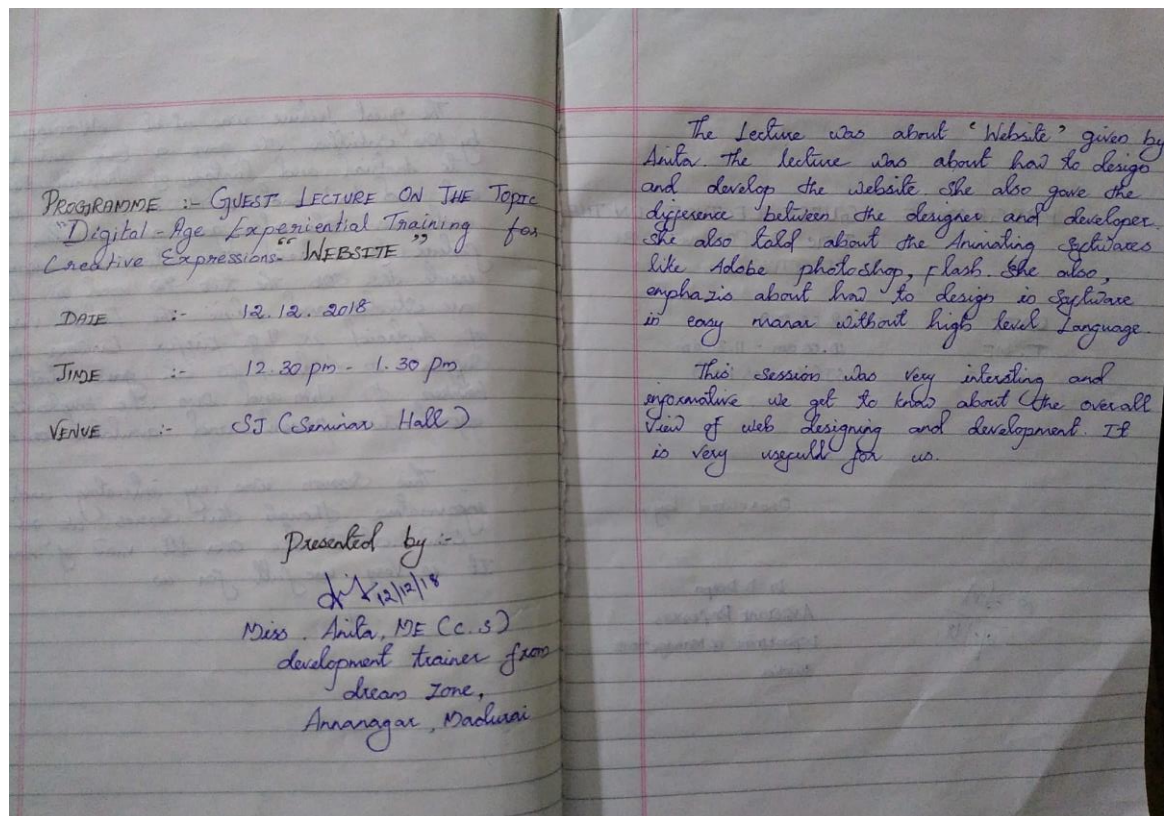 PROGRAMME :- GUEST LECTURE ON THE TOPIC
"Digital-Age Experiential Training for
Creative Expressions- "WEBSITE"
DATE :- 12.12.2018
TIME :- 12.30 pm - 1.30 pm
VENUE :- SJ (Seminar Hall)
Presented by :-
12/12/18
Miss. Anita, ME (C.S)
development trainer from
dream zone,
Annanagar, Madurai
The Lecture was about "Website" given by
Anita. The lecture was about how to design
and develop the website. She also gave the
difference between the designer and developer.
She also told about the Animating Softwares
like Adobe photoshop, flash. She also,
emphazis about how to design is Software
in easy manar without high level Language.
This session was very intersting and
informative we get to know about the overall
view of web designing and development. It
is very usefull for us.